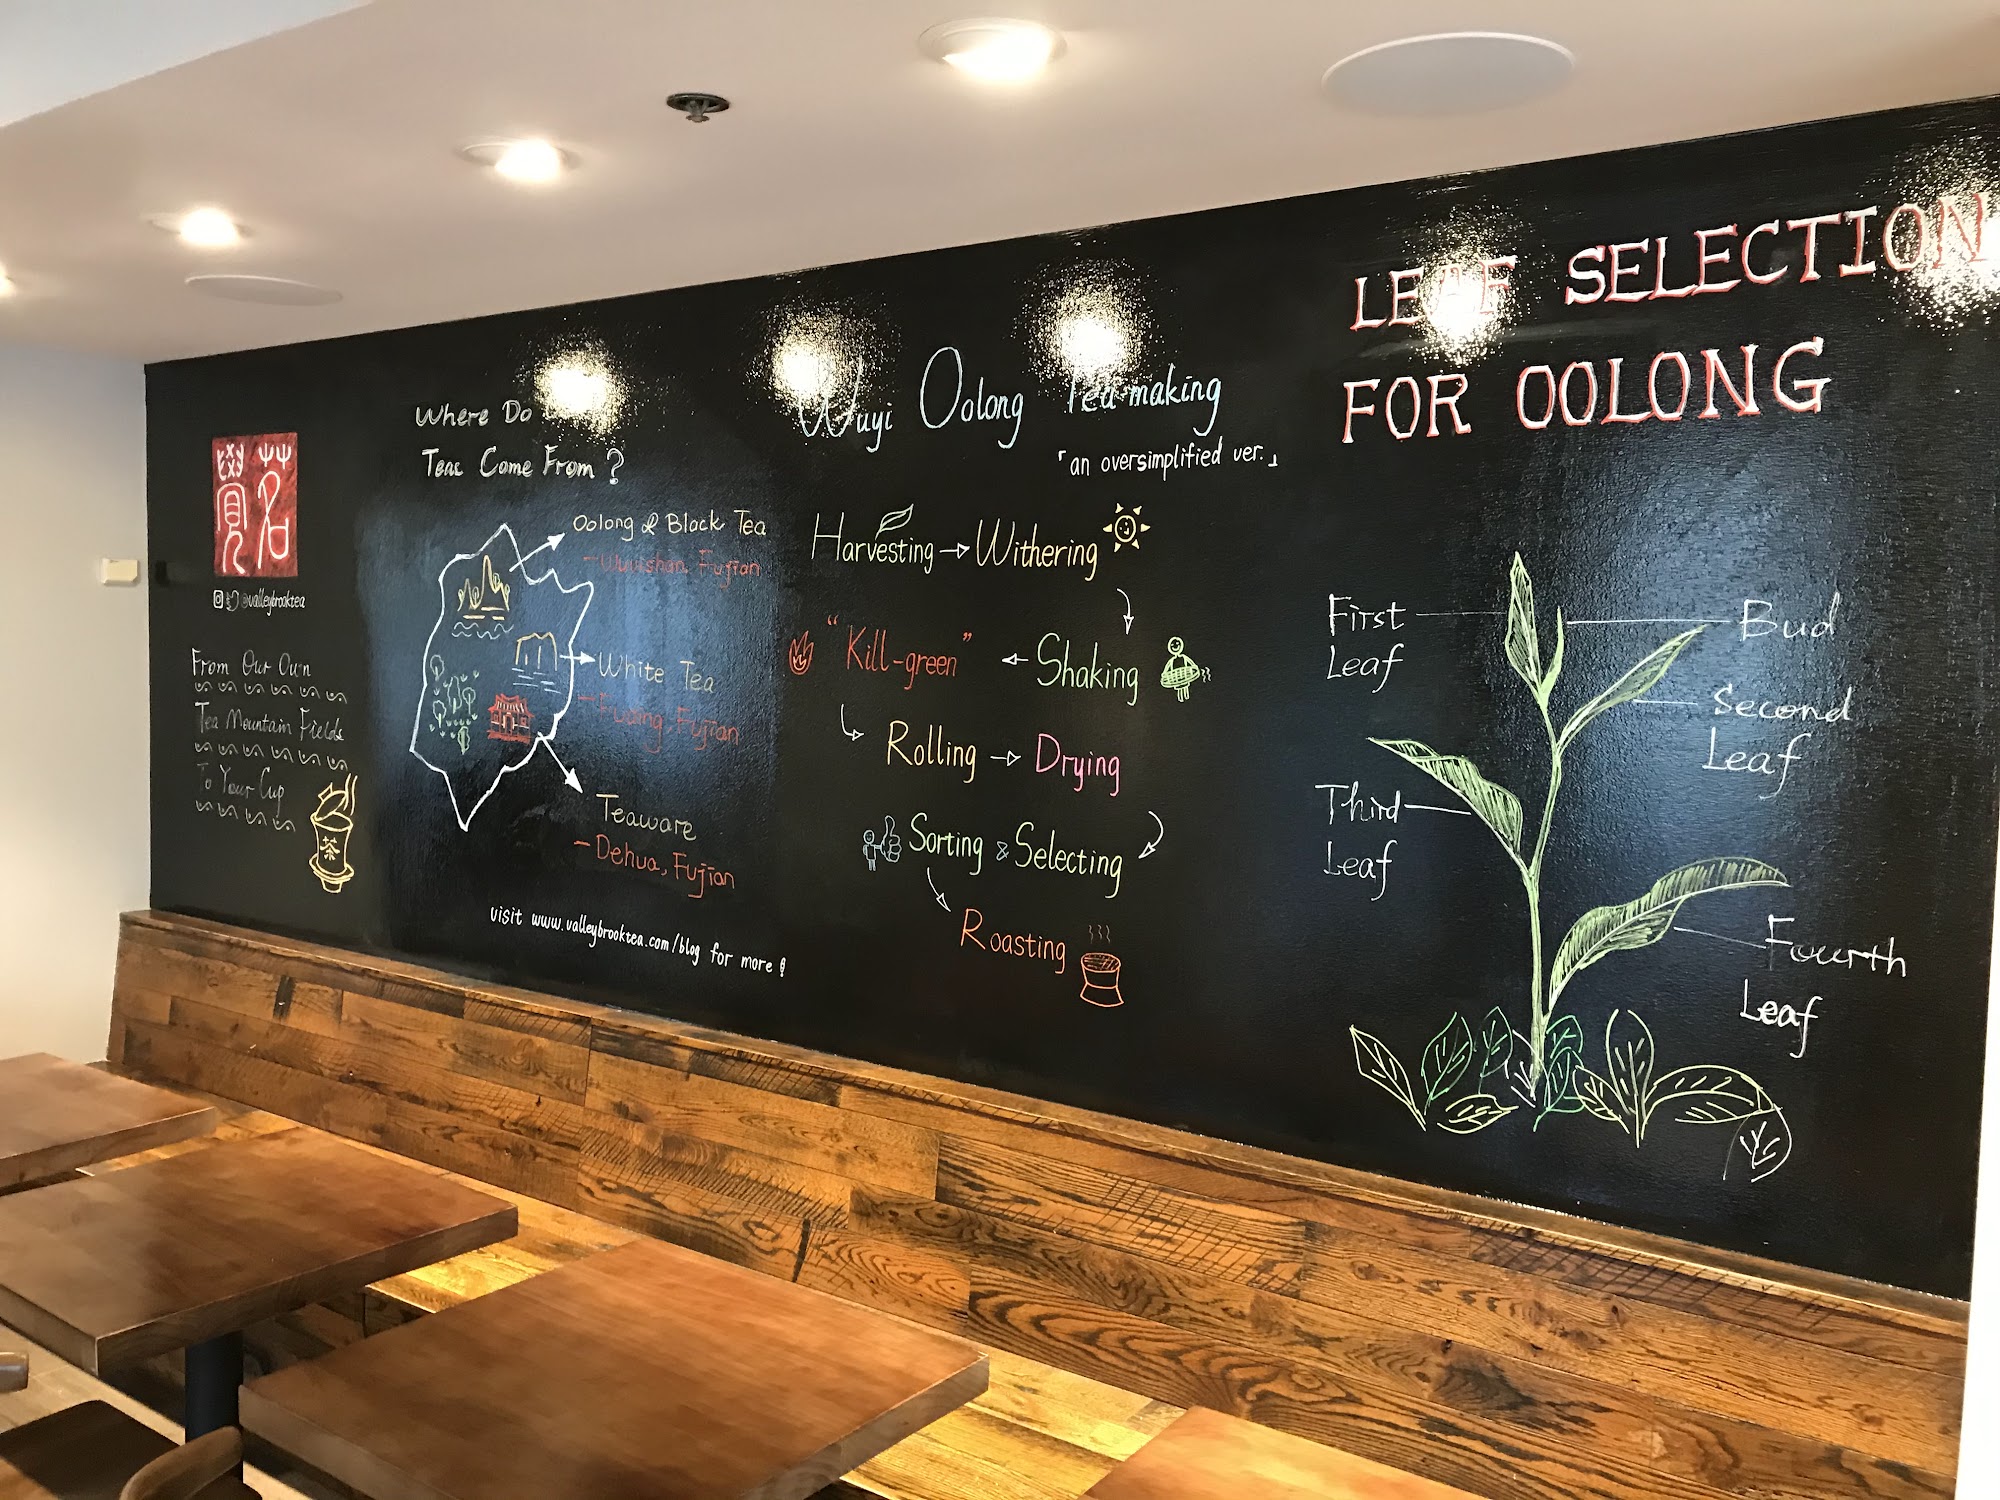 @valleybrooktea
From Our Own
Tea Mountain Fields
To Your Cup
茶
Where Do
Teas Come From ?
Oolong & Black Tea
- Wuyishan, Fujian
White Tea
- Fuding, Fujian
Teaware
- Dehua, Fujian
visit www.valleybrooktea.com/blog for more !
Wuyi Oolong Tea-making
「an oversimplified ver.」
Harvesting → Withering
"Kill-green" ← Shaking
Rolling → Drying
Sorting & Selecting
Roasting
LEAF SELECTION
FOR OOLONG
First
Leaf
Bud
Second
Leaf
Third
Leaf
Fourth
Leaf